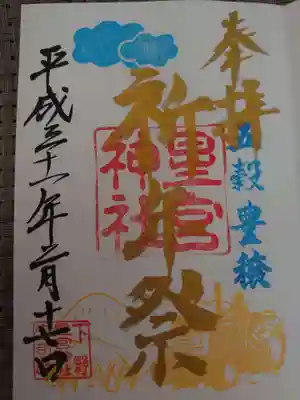 奉拝
五穀豊穣
祈年祭
星宮
神社
平成三十一年二月十七日